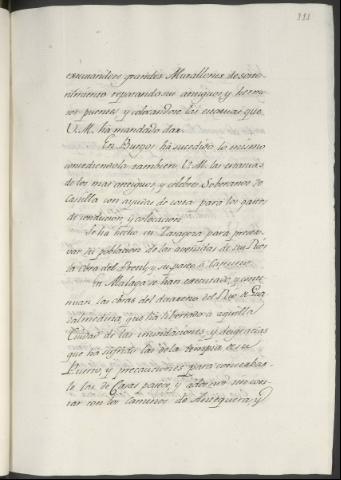 111
executandose grandes Murallones de sosten
nimiento reparando sus antiguos y hermo
sos puentes y colocandose las estatuas que
V.M. ha mandado dar.
En Burgos ha sucedido lo mismo
concediendola tambien V.M. las estatuas
de los mas antiguos, y celebres Soberanos de
Castilla con ayudas de costa para los gastos
de conducion, y colocacion.
Se ha hecho en Zaragoza para preser
var su poblacion de las avenidas de sus Rios
la obra del Pretil, y su paseo ò Camino.
En Malaga se han executado, y conti
nuan las obras del desareno del Rio de Gua
dalmedina, que ha libertado à aquella
Ciudad de las inundaciones, y desgracias
que ha sufrido las de la limpia de su
Puerto, y precauciones para conservar
le las de Casas paseos, y adornos
con los caminos de Antequera, y